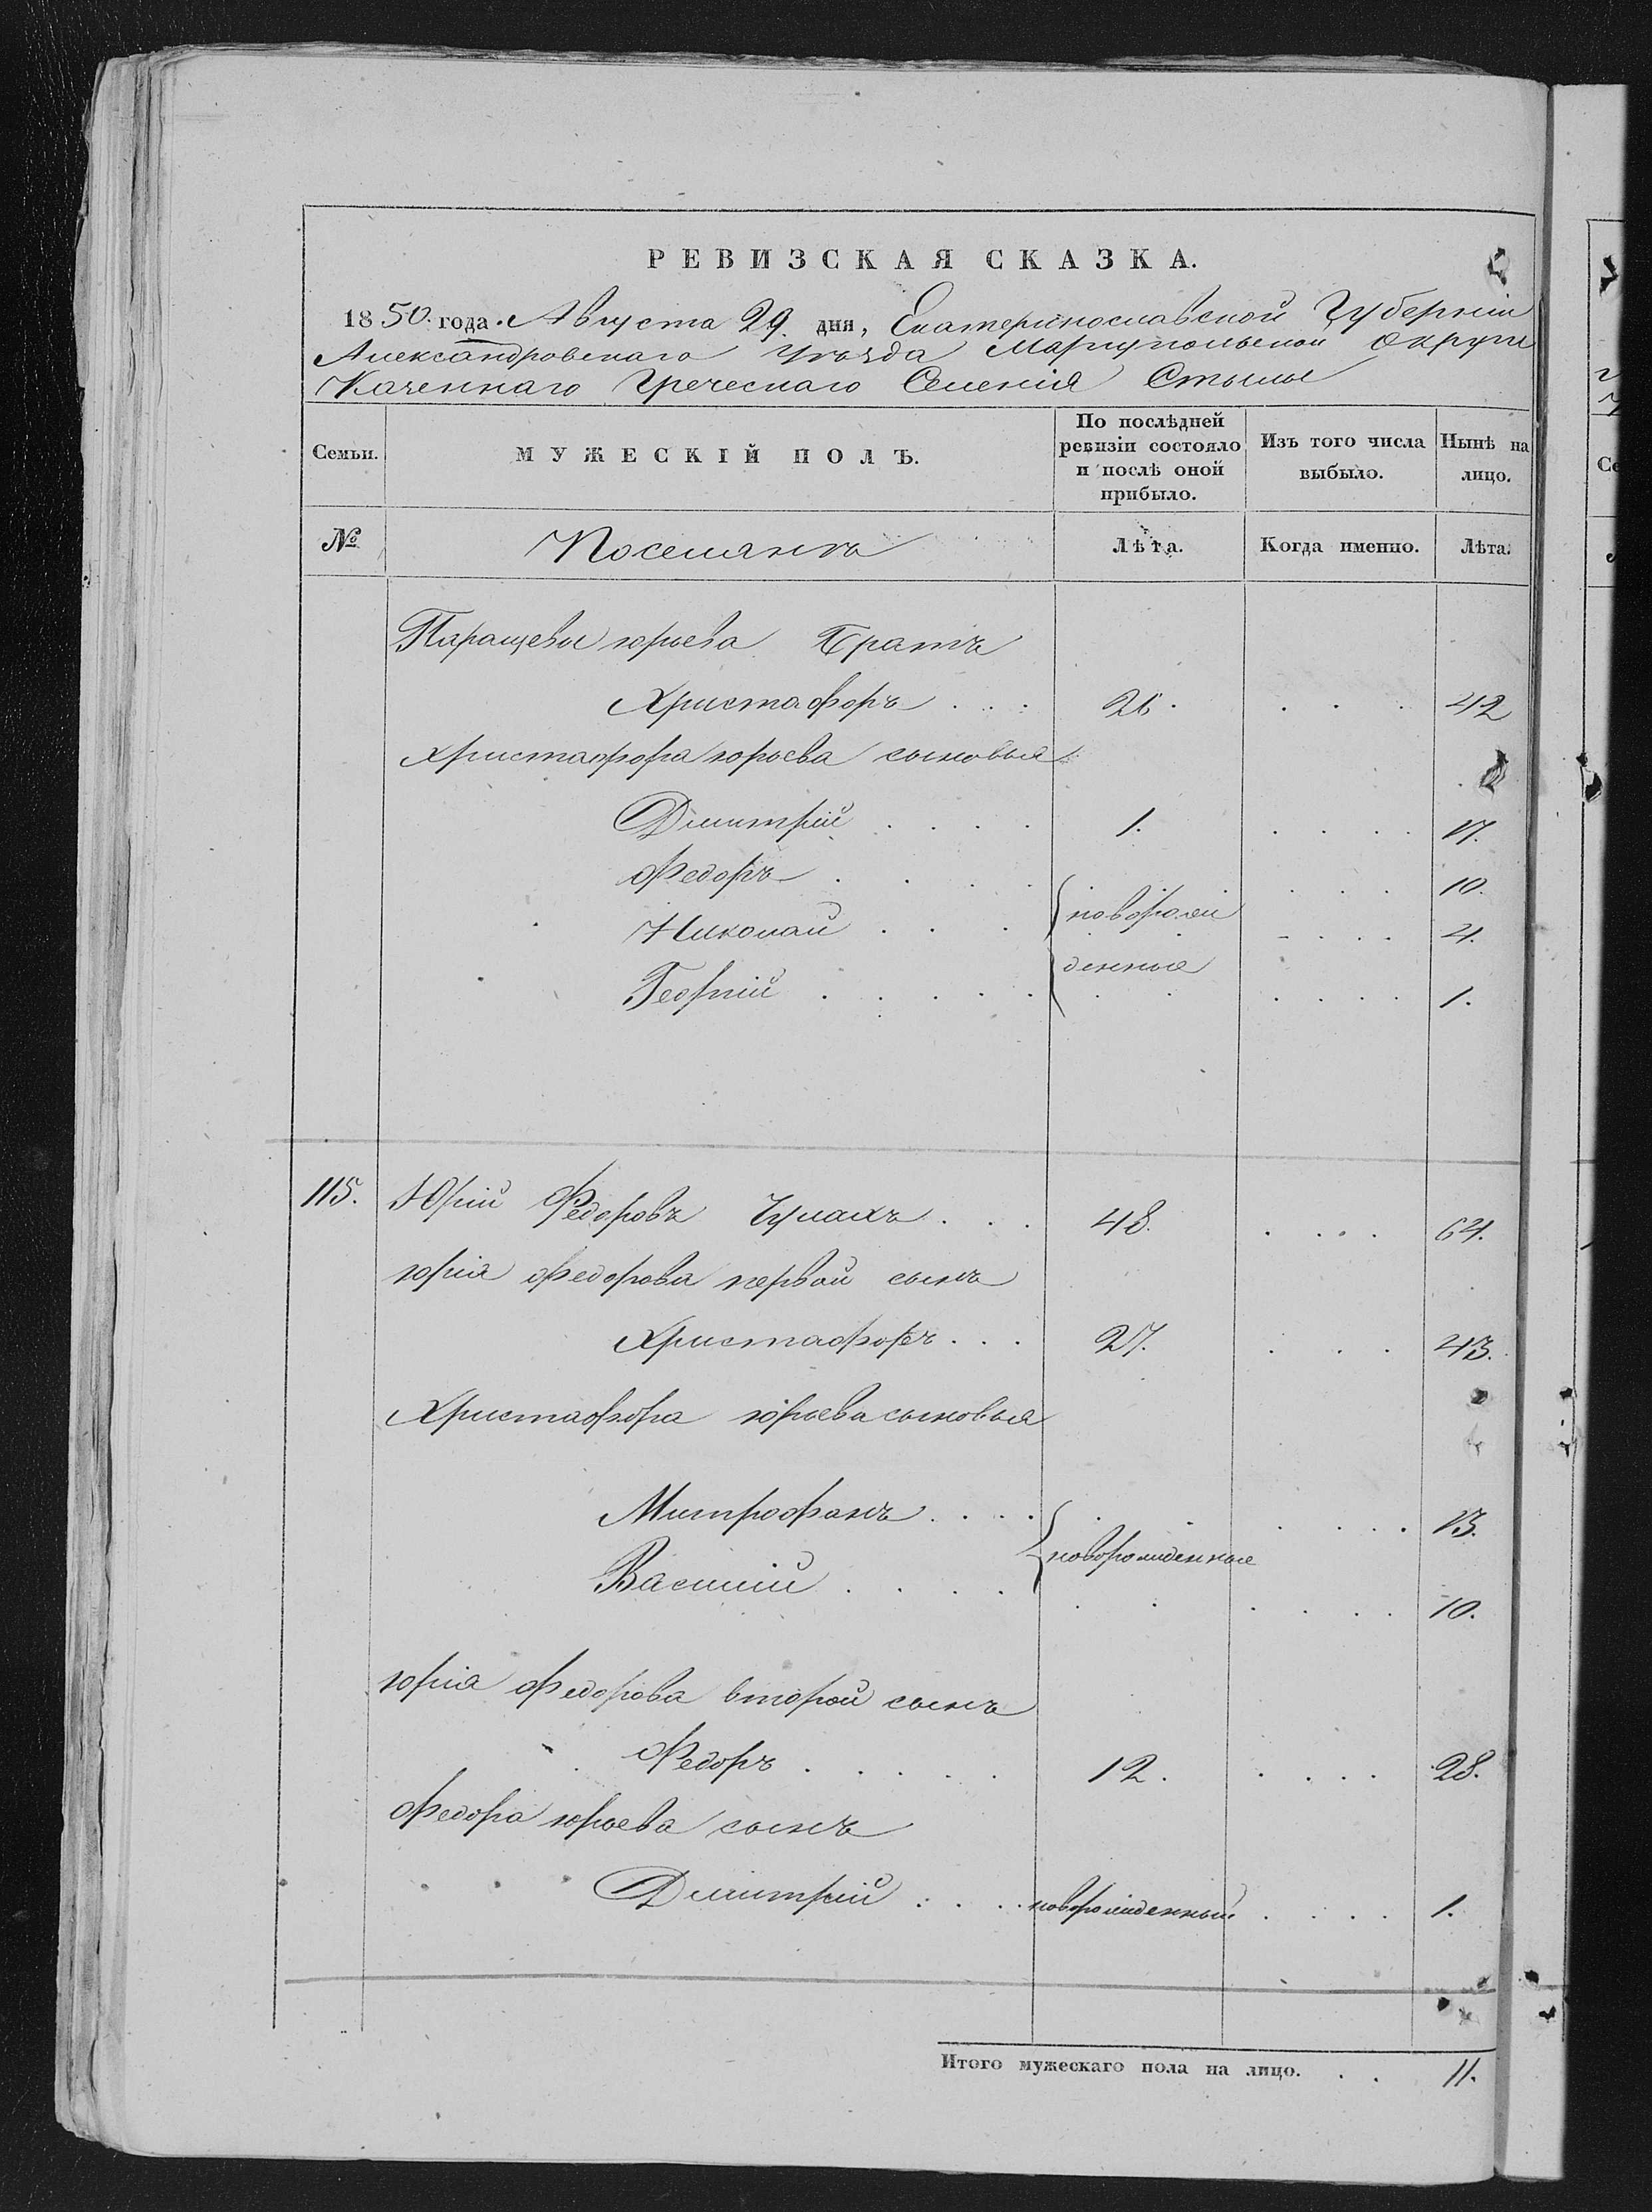 РЕВИЗСКАЯ СКАЗКА.
1850. года. Августа 29. дня, Екатеринославской Губерніи
Александровскаго Уѣзда Маріупольской Округи
Казеннаго Греческаго Селенія Стылы
Семьи.
МУЖЕСКІЙ ПОЛЪ.
По послѣдней ревизіи состояло и послѣ оной прибыло.
Изъ того числа выбыло.
Нынѣ на лицо.
№
Поселянъ
Лѣта.
Когда именно.
Лѣта.
Юрьева Братъ
Христафоръ . . . 26. . . . 42
Христафора юрьева сыновья
Дмитрій . . . . 1. . . . . 17.
Федоръ . . . . . . . 10.
Николай . . . новорож . . . . 4.
денные
Георгій . . . . . . . . . 1.
115. Юрій Федоровъ . . . 48. . . . . 64.
юрія федорова первой сынъ
Христафоръ . . . 27. . . . 43.
Христафора юрьева сыновья
Митрофанъ . . . . . . . . 13.
новорожденные
Василій . . . . . . . . 10.
юрія федорова второй сынъ
Федоръ . . . . . 12. . . . . 28.
Федора юрьева сынъ
Дмитрій . . . . новорожденный . . . . 1.
Итого мужескаго пола на лицо. . . 11.